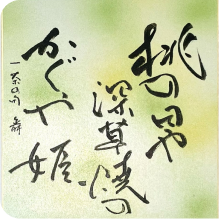 桃の日や
深草焼の
かぐや姫
一茶の句